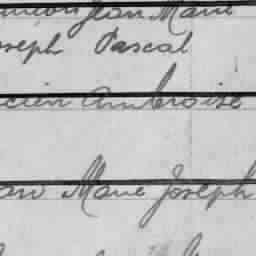 Jean Marie
oseph Pascal
ucien Ambroise
an Marie Joseph